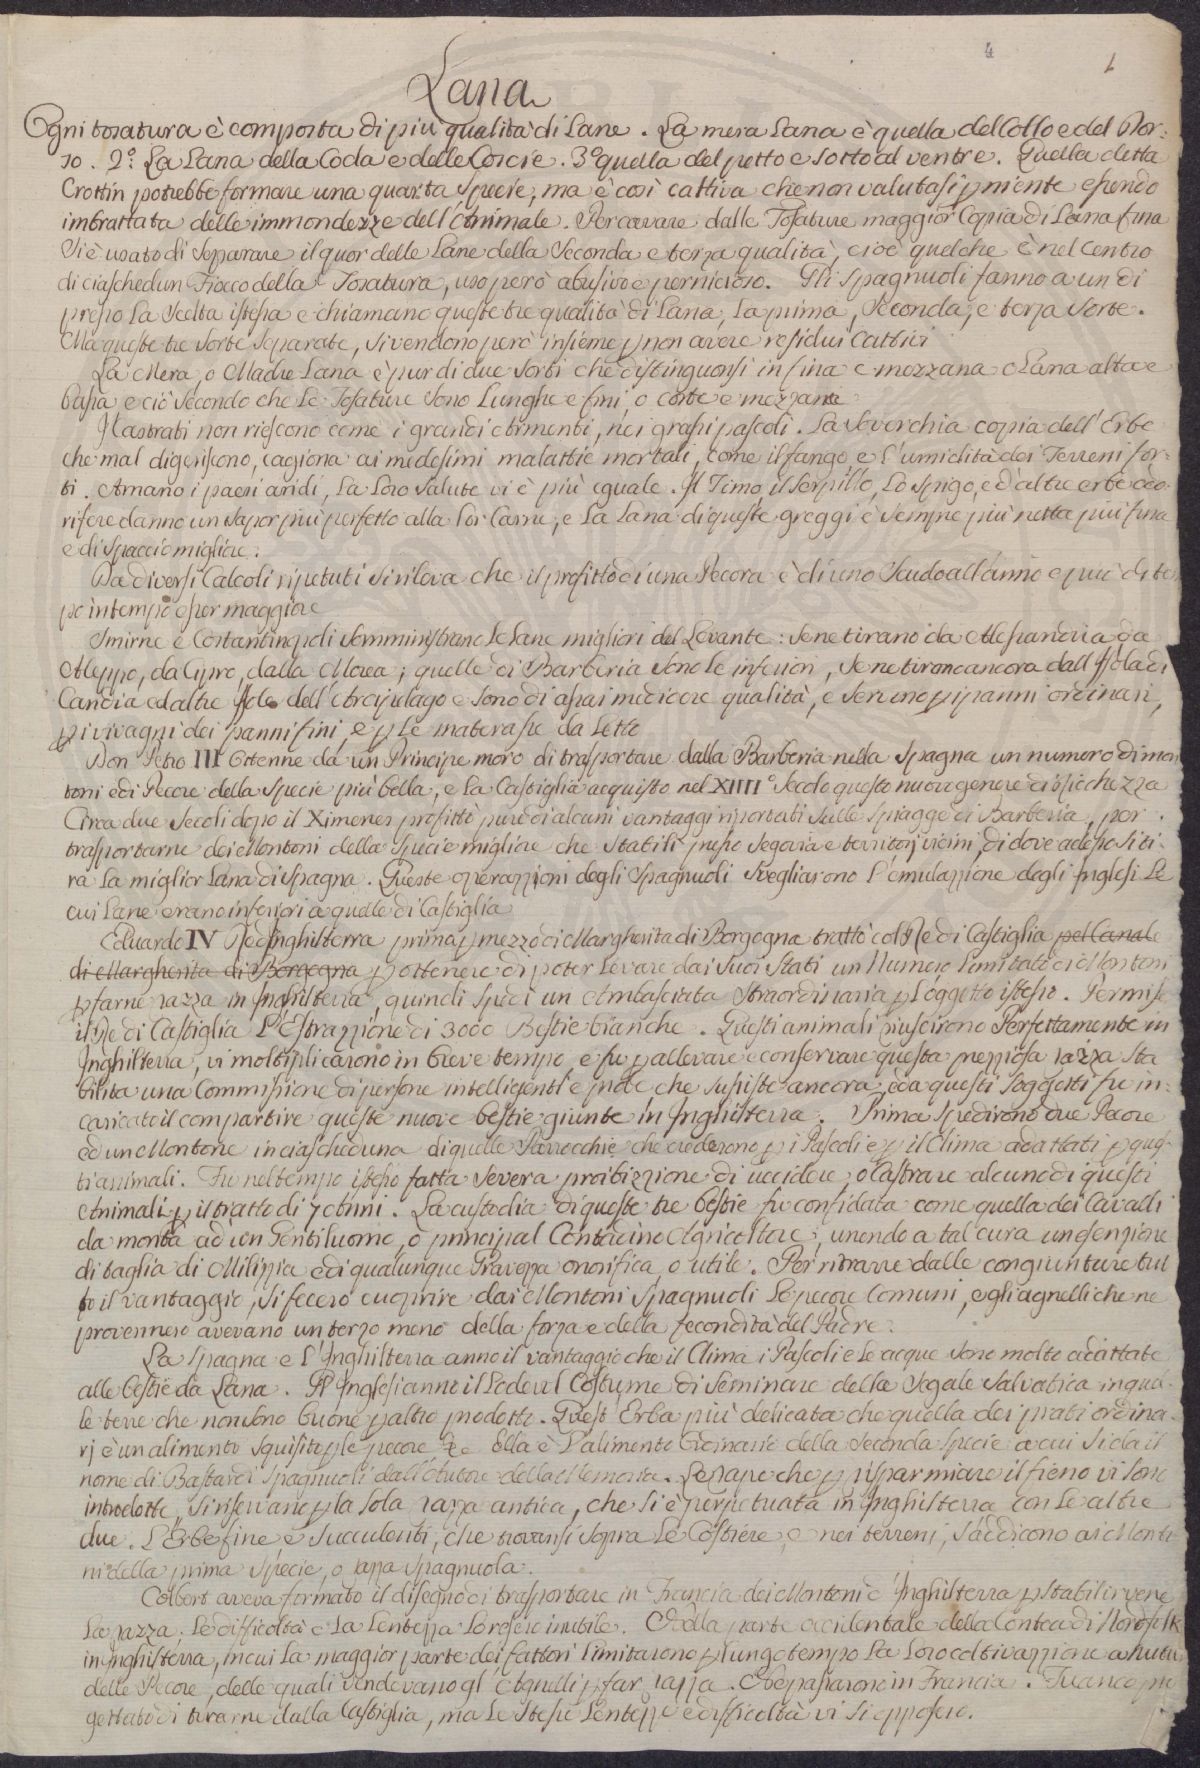 4
1
Lana
Ogni tosatura è composta di più qualità di Lane. La mera Lana è quella del Collo e del Dor:
so. 2°. La Lana della Coda e delle Coscie. 3° quella del petto e sotto al ventre. Quella detta
Crottin potrebbe formare una quarta specie, ma è così cattiva che non valutasi p niente essendo
imbrattata delle immondezze dell'Animale. Per cavare dalle Tosature maggior Copia di Lana fina
si è usato di separare il quor delle Lane della seconda e terza qualità, cioè quel che è nel centro
di ciaschedun Fiocco della Tosatura, uso però abusivo e pernicioso. Gli Spagnuoli fanno a un di
presso la scelta istessa e chiamano queste tre qualità di Lana, La prima, seconda, e terza sorte.
Ma queste tre sorte separate, si vendono però insieme p non avere residui Cattivi
La Mera, o Madre Lana è pur di due sorti che distinguonsi in fina e mezzana o Lana alta e
bassa e ciò secondo che le Tosature sono Lunghe e fini, o corte e mezzane
I Castrati non riescono come i grandi armenti, nei grassi pascoli. La soverchia copia dell'Erbe
che mal digeriscono, cagiona ai medesimi malattie mortali, come il fango e l'umidità dei Terreni for:
ti. Amano i paesi aridi, la loro salute vi è più eguale. Il Timo, il Serpillo, Lo Spigo, ed altre erbe odo:
rifere danno un sapor più perfetto alla lor Carne, e la Lana di queste greggi è sempre più netta più fina
e di spaccio migliore.
Da diversi Calcoli ripetuti si rileva che il profitto di una Pecora è di uno Scudo all'anno e può di tem
po in tempo esser maggiore
Smirne e Costantinopoli somministrano le Lane migliori del Levante: se ne tirano da Alessandria da
Aleppo, da Cipro, dalla Morea; quelle di Barberia sono le inferiori, se ne tirano ancora dall'Isola di
Candia ed altre Isole dell'Arcipelago e sono di assai mediocre qualità, e servono p i panni ordinari,
p i vivagni dei panni fini, e p le materasse da Letto
Don Petro III Ottenne da un Principe moro di trasportare dalla Barberia nella Spagna un numero di mon
toni e di Pecore della specie più bella, e la Castiglia acquistò nel XIIII° Secolo questo nuovo genere di ricchezza
Circa due secoli dopo il Ximenes profittò pure di alcuni vantaggi riportati sulle spiagge di Barberia, per
trasportarne dei Montoni della specie migliore che stabilì presso Segovia e territorj vicini, di dove adesso si ti:
ra la miglior Lana di Spagna. Queste operazzioni degli Spagnuoli svegliarono l'emulazzione degli Inglesi Le
cui Lane erano inferiori a quelle di Castiglia
Eduardo IV Re d'Inghilterra prima p mezzo di Margherita di Borgogna trattò col Re di Castiglia pel Canale
di Margherita di Borgogna p ottenere di poter levare dai suoi Stati un Numero limitato di Montoni
p farne razza in Inghilterra, quindi spedì un Ambasciata straordinaria p l'oggetto istesso. Permise
il Re di Castiglia L'Estrazzione di 3000 Bestie bianche. Questi animali riuscirono Perfettamente in
Inghilterra, vi moltiplicarono in breve tempo e fu p allevare e conservare questa prezziosa razza sta
bilita una Commissione di persone intelligenti e probe che sussiste ancora, e da questi soggetti fu in:
caricato il compartire queste nuove bestie giunte in Inghilterra. Prima spedirono due Pecore
ed un Montone in ciascheduna di quelle Parrocchie che crederono p i Pascoli e p il Clima adattati p ques
ti animali. Fu nel tempo istesso fatta severa proibizzione di uccidere, o Castrare alcuno di questi
Animali p il tratto di 7 Anni. La custodia di queste tre bestie fu confidata come quella dei Cavalli
da monta ad un Gentiluomo, o principal Contadino Agricoltore, unendo a tal cura un esenzione
di taglia di Milizzia e di qualunque Gravezza onorifica, o utile. Per ritrarre dalle congiunture tut
to il vantaggio, si fecero cuoprire dai Montoni Spagnuoli le pecore Comuni, e gli agnelli che ne
provennero avevano un terzo meno della forza e della fecondità del Padre.
La Spagna e l'Inghilterra anno il vantaggio che il Clima i Pascoli e le acque sono molto adattate
alle bestie da Lana. Gl'Inglesi anno il Lodevol Costume di seminare della Segale salvatica in qual
le terre che non sono buone p altro prodotto. Quest'Erba più delicata che quella dei prati ordina:
rj è un alimento squisito p le pecore Ella è l'alimento Ordinario della seconda specie a cui si dà il
nome di Bastardi Spagnuoli dall'Autore della Memoria. Le rape che p risparmiare il fieno vi sono
introdotte, si riservano p la sola razza antica, che si è perpetuata in Inghilterra con le altre
due. L'Erbe fine e succulenti, che trovansi sopra le Costiere, o nei terreni, s'addicono ai Monto
ni della prima specie, o razza Spagnuola.
Colbert aveva formato il disegno di trasportare in Francia dei Montoni d'Inghilterra p stabilirvene
la razza. Le difficoltà e la Lentezza lo resero inutile. Nella parte occidentale della Contea di Norofolk
in Inghilterra, in cui la maggior parte dei fattori limitarono p lungo tempo la loro coltivazzione a nutri
delle Pecore, delle quali vendevano gl'Agnelli p far razza. Ne passarono in Francia. Fu anco pro
gettato di tirarne dalla Castiglia, ma le stesse Lentezze e difficoltà vi si opposero.